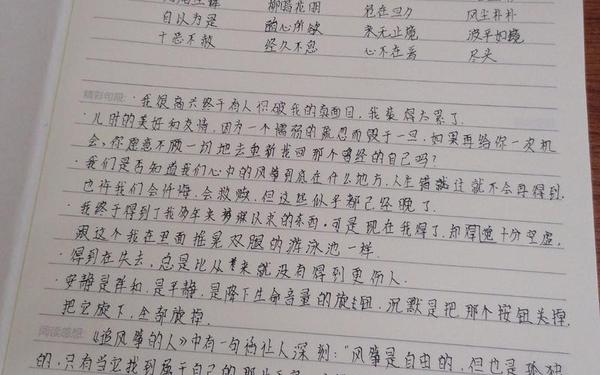 柳暗花明 危在旦夕 风尘仆仆
自以为是 随心所欲 永无止境 波平如镜
十恶不赦 经久不息 心不在焉 尽头
精彩句段: ·我很高兴终于有人识破我的真面目,我装得太累了.
·儿时的美好和友情,因为一个懦弱的意思而毁于一旦,如果再给你一次机
会,你愿意不顾一切地去重新找回那个曾经的自己吗?
·我们是否知道我们心中的风筝到底在什么地方,人生错过往就不会再得到.
也许我们会忏悔,会救赎,但这些似乎都已经晚了.
·我终于得到了我数年来梦寐以求的东西,可是现在我得了,却觉它十分空虚,
跟这个我在里面摇晃双腿的游泳池一样.
·得到在失去,总是比从来就没有得到更伤人.
·安静是祥和,是平静,是降下生命音量的旋钮,沉默是把那个按钮关掉,
把它旋下,全部旋掉.
阅读感想: 《追风筝的人》中有一句话让人深刻:"风筝是自由的,但也是孤独
的,只有当它找到属于自己的那